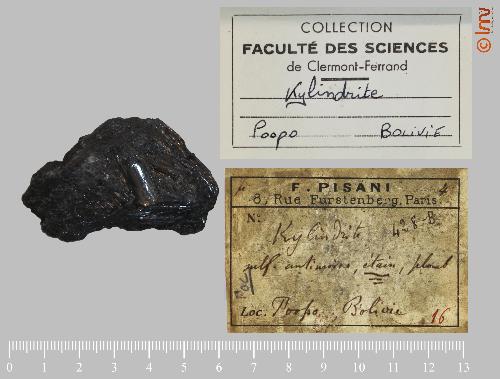 COLLECTION
FACULTÉ DES SCIENCES
de Clermont-Ferrand
Kylindrite
Poopo BOLIVIE
© lmv
F. PISANI
8, Rue Furstenberg, Paris
N: 428-B
Kylindrite
sulf. antimoine, étain, plomb
Loc. Poopo, Bolivie 16
0 1 2 3 4 5 6 7 8 9 10 11 12 13